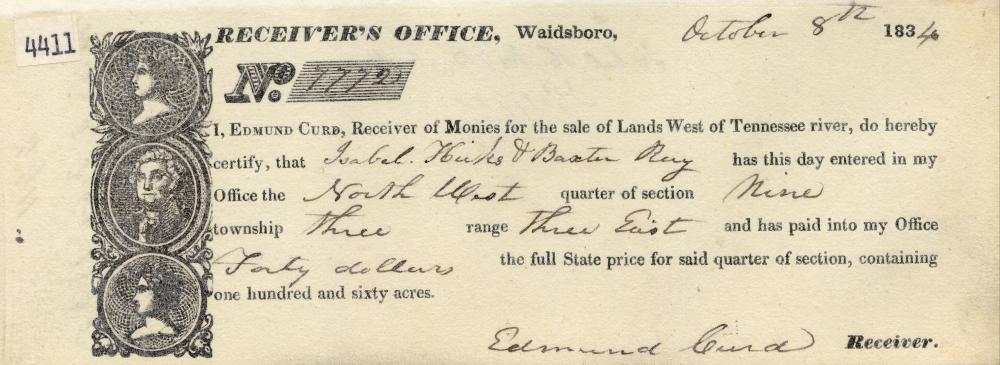 4411
RECEIVER'S OFFICE, Waidsboro, October 8th 1834
No. 1772
I, EDMUND CURD, Receiver of Monies for the sale of Lands West of Tennessee river, do hereby
certify, that Isabel. Hicks & Baxter Ray has this day entered in my
Office the North West quarter of section Nine
township Three range Three East and has paid into my Office
Forty dollars the full State price for said quarter of section, containing
one hundred and sixty acres.
Edmund Curd Receiver.